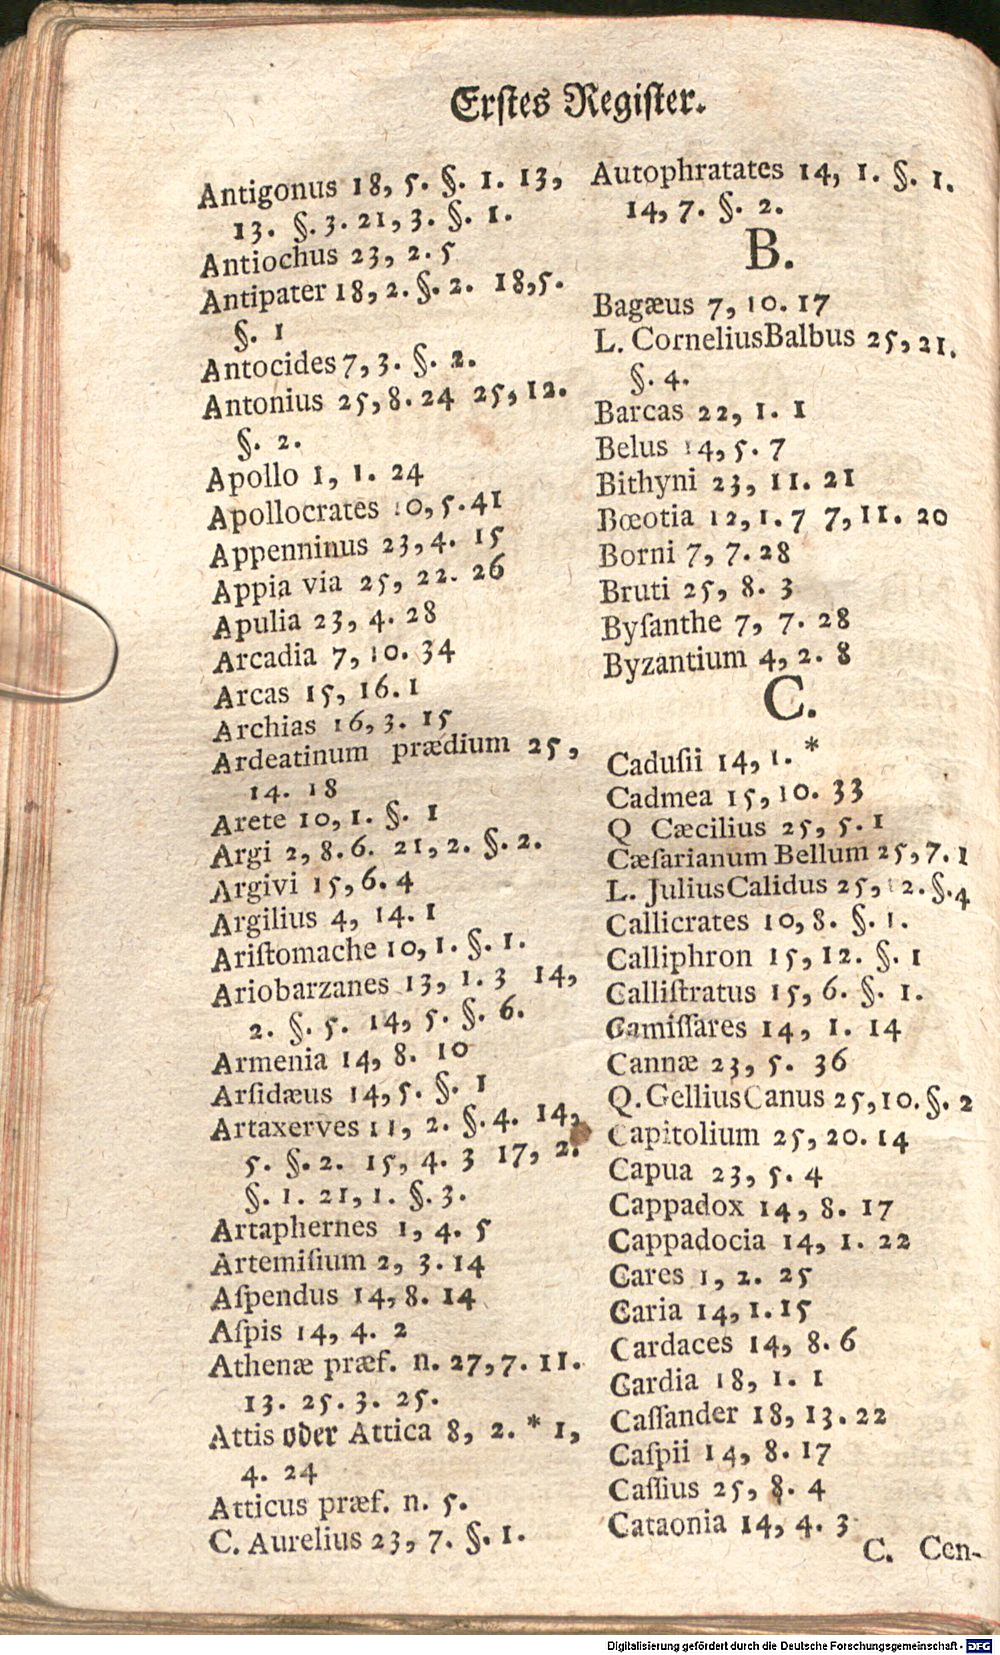 Erſtes Regiſter.
Antigonus 18, 5. §. 1. 13,
13. §. 3. 21, 3. §. 1.
Antiochus 23, 2. 5
Antipater 18, 2. §. 2. 18, 5.
§. 1
Antocides 7, 3. §. 2.
Antonius 25, 8. 24 25, 12.
§. 2.
Apollo 1, 1. 24
Apollocrates 10, 5. 41
Appenninus 23, 4. 15
Appia via 25, 22. 26
Apulia 23, 4. 28
Arcadia 7, 10. 34
Arcas 15, 16. 1
Archias 16, 3. 15
Ardeatinum prædium 25,
14. 18
Arete 10, 1. §. 1
Argi 2, 8. 6. 21, 2. §. 2.
Argivi 15, 6. 4
Argilius 4, 14. 1
Ariſtomache 10, 1. §. 1.
Ariobarzanes 13, 1. 3 14,
2. §. 5. 14, 5. §. 6.
Armenia 14, 8. 10
Arſidæus 14, 5. §. 1
Artaxerves 11, 2. §. 4. 14,
5. §. 2. 15, 4. 3 17, 2.
§. 1. 21, 1. §. 3.
Artaphernes 1, 4. 5
Artemiſium 2, 3. 14
Aſpendus 14, 8. 14
Aſpis 14, 4. 2
Athenæ præf. n. 27, 7. 11.
13. 25. 3. 25.
Attis oder Attica 8, 2. * 1,
4. 24
Atticus præf. n. 5.
C. Aurelius 23, 7. §. 1.
Autophratates 14, 1. §. 1.
14, 7. §. 2.
B.
Bagæus 7, 10. 17
L. Cornelius Balbus 25, 21.
§. 4.
Barcas 22, 1. 1
Belus 14, 5. 7
Bithyni 23, 11. 21
Bœotia 12, 1. 7 7, 11. 20
Borni 7, 7. 28
Bruti 25, 8. 3
Byſanthe 7, 7. 28
Byzantium 4, 2. 8
C.
Caduſii 14, 1. *
Cadmea 15, 10. 33
Q Cæcilius 25, 5. 1
Cæſarianum Bellum 25, 7. 1
L. Julius Calidus 25, 12. §. 4
Callicrates 10, 8. §. 1.
Calliphron 15, 12. §. 1
Calliſtratus 15, 6. §. 1.
Camiſſares 14, 1. 14
Cannæ 23, 5. 36
Q. Gellius Canus 25, 10. §. 2
Capitolium 25, 20. 14
Capua 23, 5. 4
Cappadox 14, 8. 17
Cappadocia 14, 1. 22
Cares 1, 2. 25
Caria 14, 1. 15
Cardaces 14, 8. 6
Cardia 18, 1. 1
Caſſander 18, 13. 22
Caſpii 14, 8. 17
Caſſius 25, 8. 4
Cataonia 14, 4. 3
C. Cen-
Digitalisierung gefördert durch die Deutsche Forschungsgemeinschaft - DFG